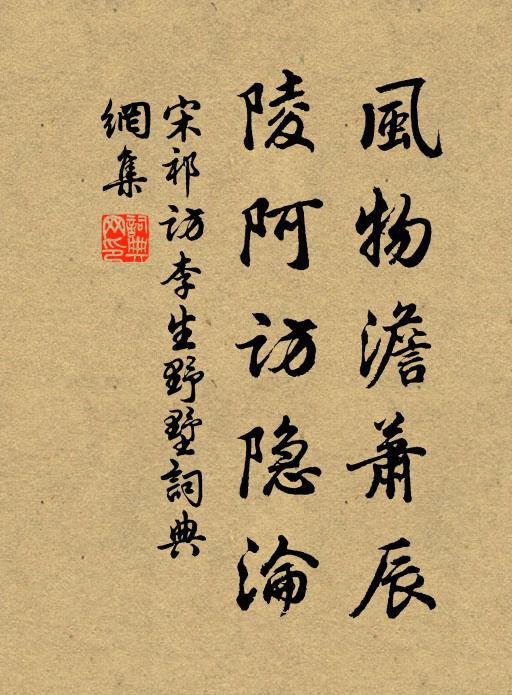 風物澹蕭辰
陵阿访隐淪
宋祁访李生野墅詞典
網集
詞典
网印